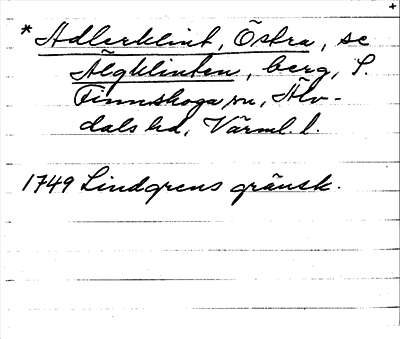 +
* Adlerklint, Östra, se
Älgklinten, berg, S.
Finnskoga sn, Älv-
dals hd, Värml. l.
1749 Lindgrens gränsk.